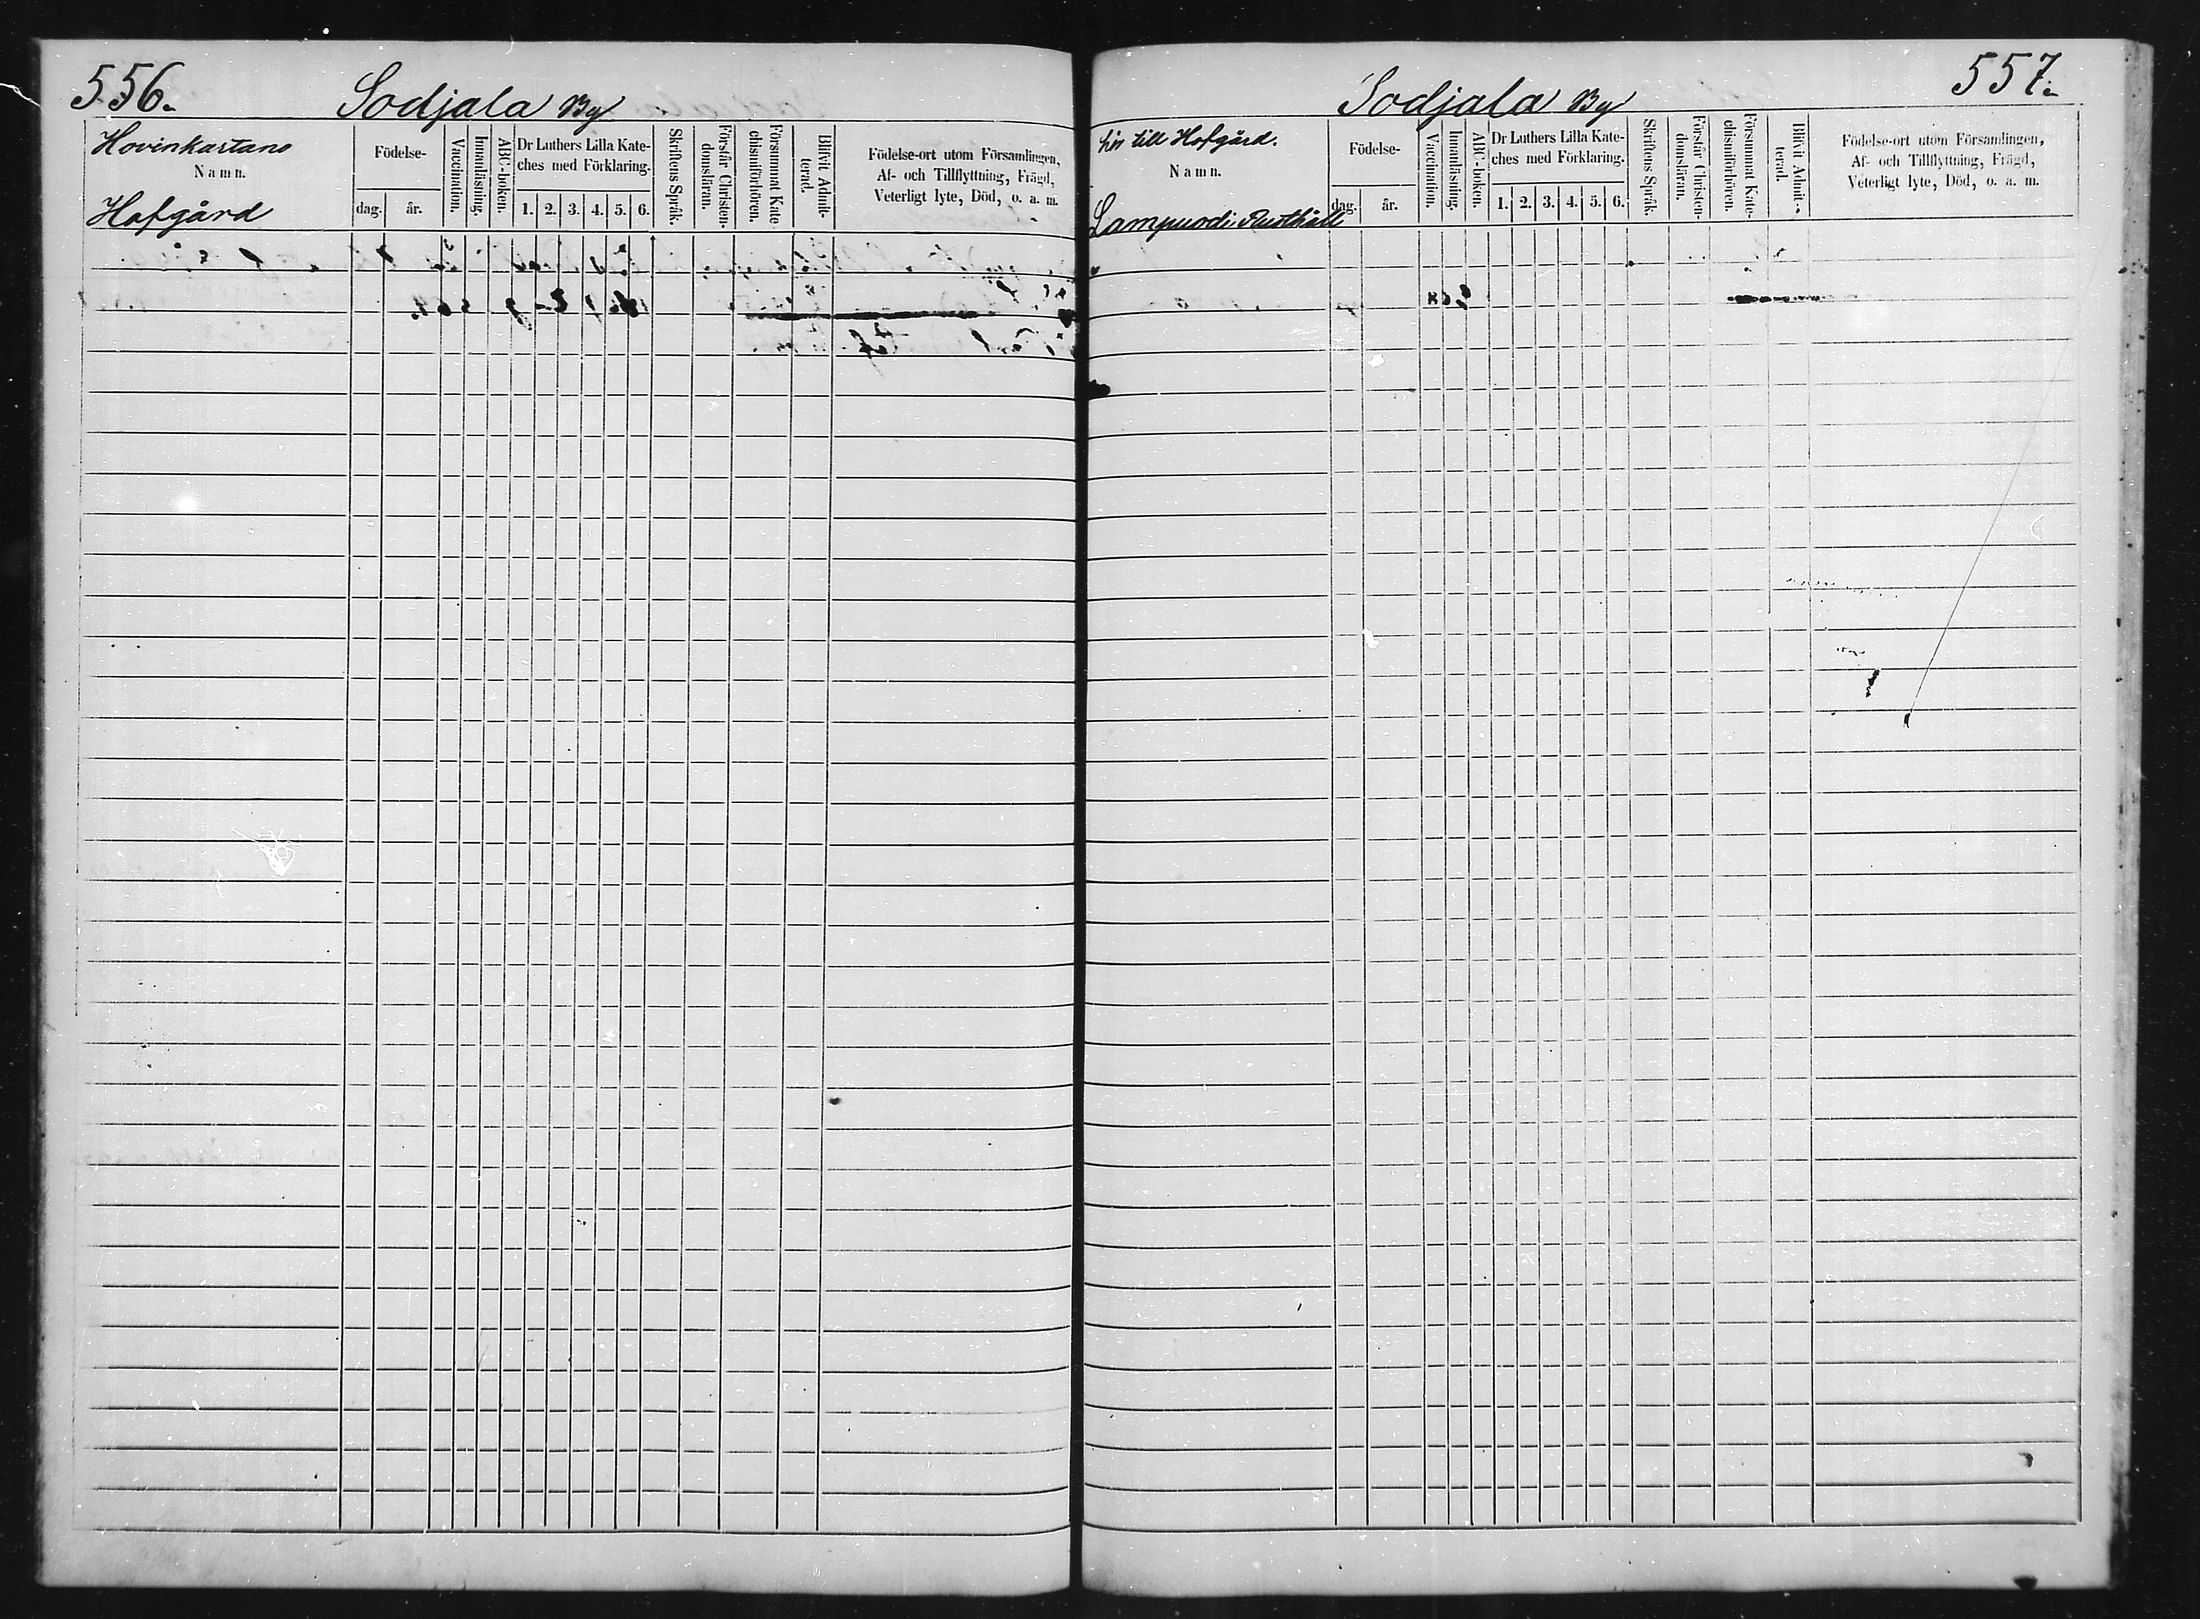 556.
Sodjala By
Hovinkartano
Namn.
Hofgård
Födelse-
dag.
år.
Vaccination.
Innanläsning.
ABC-boken.
Dr Luthers Lilla Kate-
ches med Förklaring.
1. 2. 3. 4. 5. 6.
Skriftens Språk.
Förstår Christen-
domsläran.
Försummat Kate
chismiförhören.
Blifvit Admit-
terad.
Födelse-ort utom Församlingen,
Af- och Tillflyttning, Frägd,
Veterligt lyte, Död, o. a. m.
557.
Sodjala By
hör till Hofgård.
Namn.
Lampuodi Rusthåll
Födelse-
dag.
år.
Vaccination.
Innanläsning.
ABC-boken.
Dr Luthers Lilla Kate-
ches med Förklaring.
1. 2. 3. 4. 5. 6.
Skriftens Språk.
Förstår Christen-
domsläran.
Försummat Kate-
chismiförhören.
Blifvit Admit-
terad.
Födelse-ort utom Församlingen,
Af- och Tillflyttning, Frägd,
Veterligt lyte, Död, o. a. m.